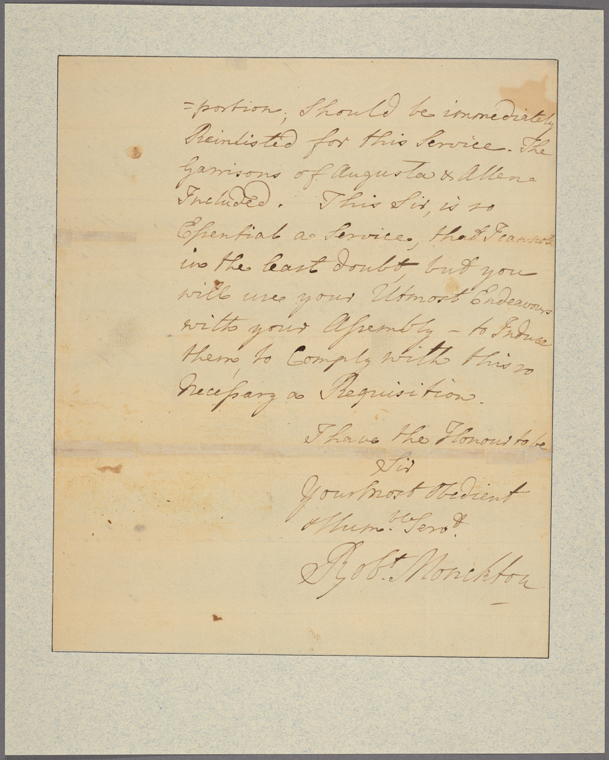 =portion, should be immediately
Reinlisted for this Service. The
Garrisons of Augusta & Allen
Included. This Sir, is so
Essential a Service, that I cannot
in the least doubt but you
will use your Utmost Endeavours
with your Assembly – to Induce
them, to Comply with this so
Necessary a Requisition.
I have the Honour to be
Sir
Your most Obedient
Hum.ble Serv.t
Rob.t Monckton